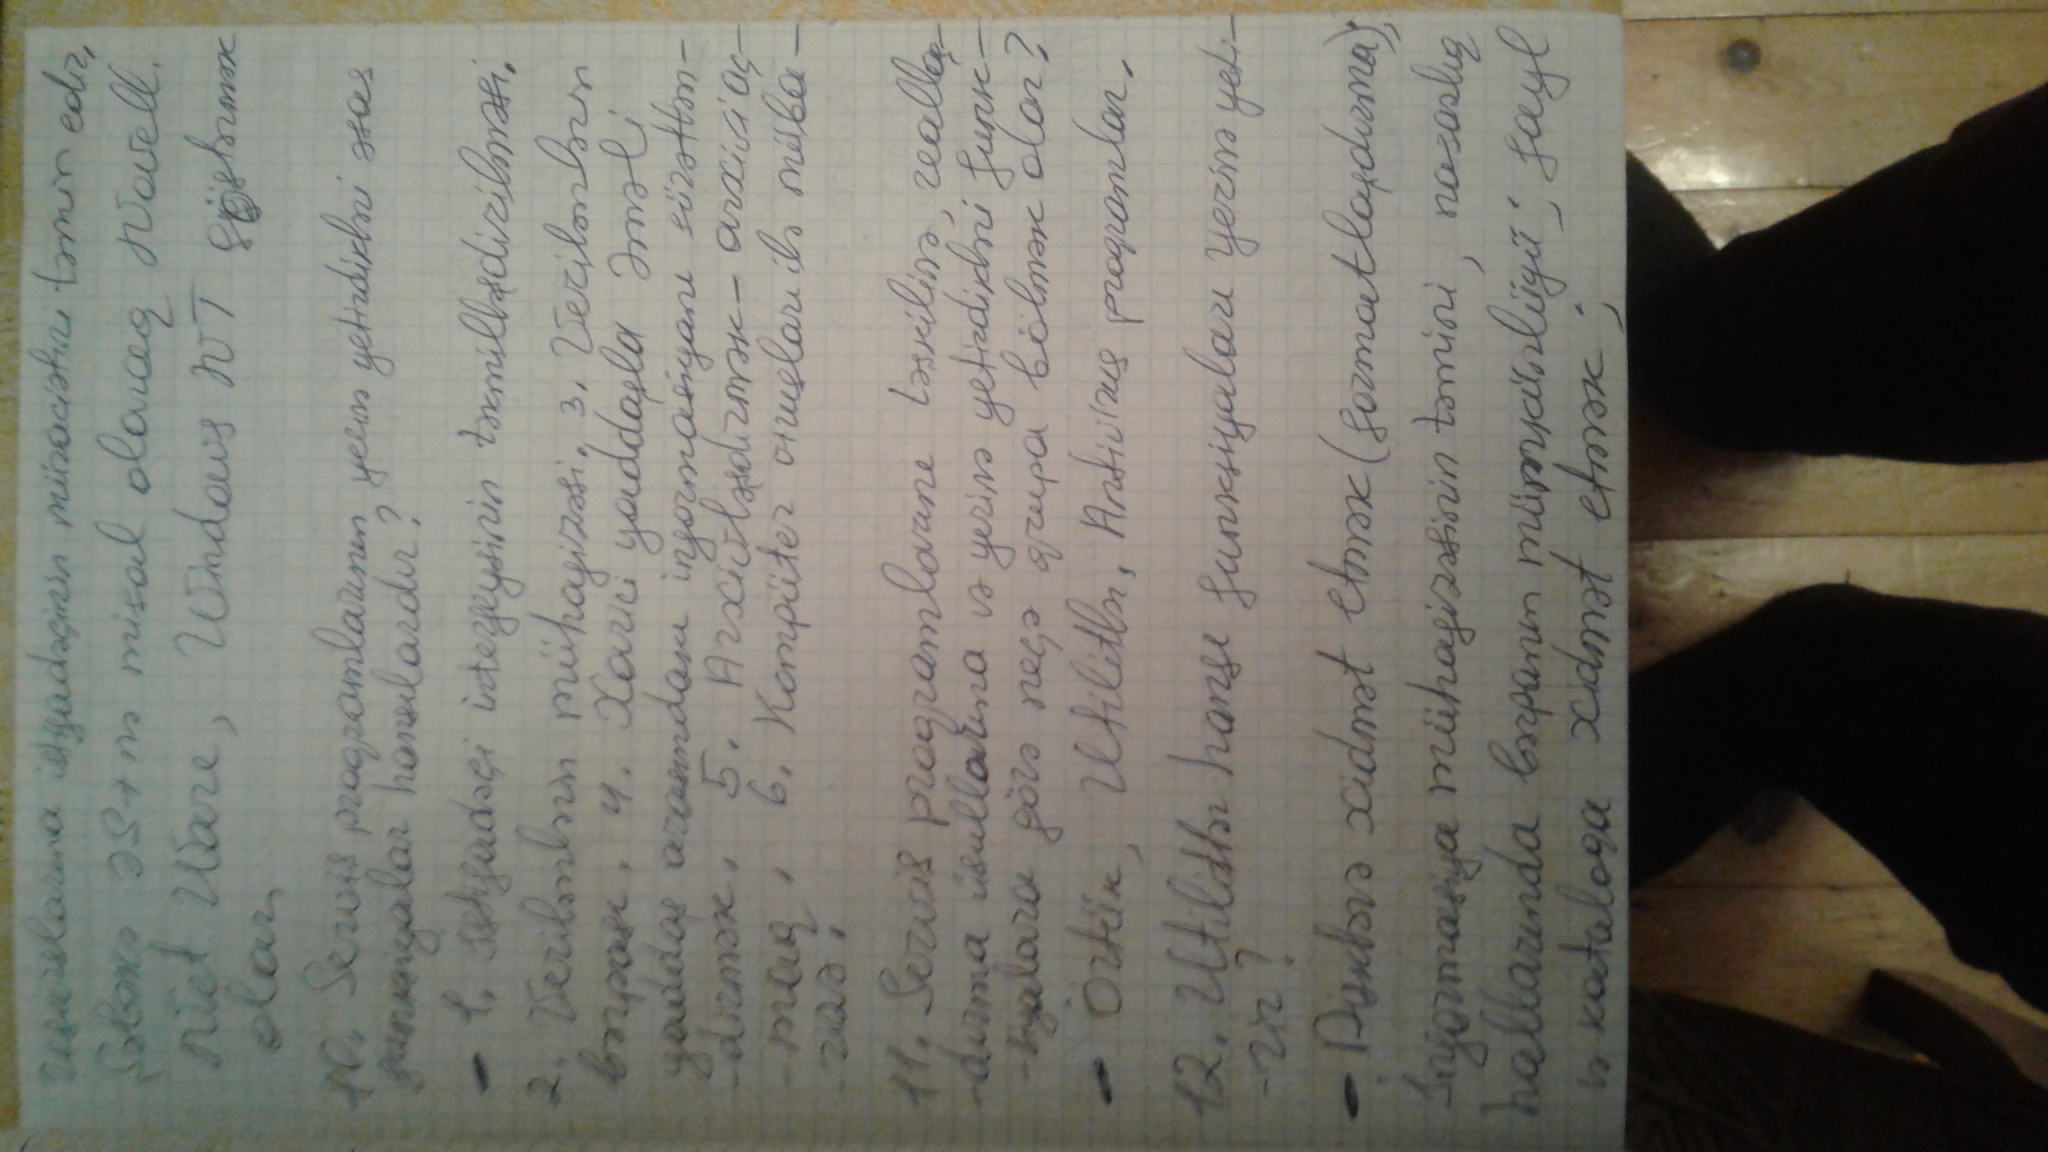 resurslarına istifadəçinin müraciətini təmin edir,
Şəbəkə ƏS-nə misal olaraq Novell.
Net Ware, Windows NT göstərmək
olar,
10. Servis proqramlarının yerinə yetirdikləri əsas
funksiyalar hansılardır?
- 1. İstifadəçi interfeysinin təkmilləşdirilməsi.
2. Verilənlərin mühafizəsi. 3. Verilənlərin
bərpası. 4. Xarici yaddaşla əməli
yaddaş arasındakı informasiyanı sürətlən-
-dirmək. 5. Arxivləşdirmək - arxivi aç-
-maq. 6. Kompüter virusları ilə müba-
-rizə.
11. Servis proqramlarını təşkilinə, reallaş-
-dırma üsullarına və yerinə yetirdikləri funk-
-siyalara görə neçə qrupa bölmək olar?
- Örtük, Utilitlər, Antivirus proqramlar.
12. Utilitlər hansı funksiyaları yerinə yeti-
-rir?
- Disklərə xidmət etmək (formatlaşdırma);
İnformasiya mühafizəsinin təmini, nasazlıq
hallarında bərpanın mümkünlüyü; fayl
və kataloqa xidmət etmək;